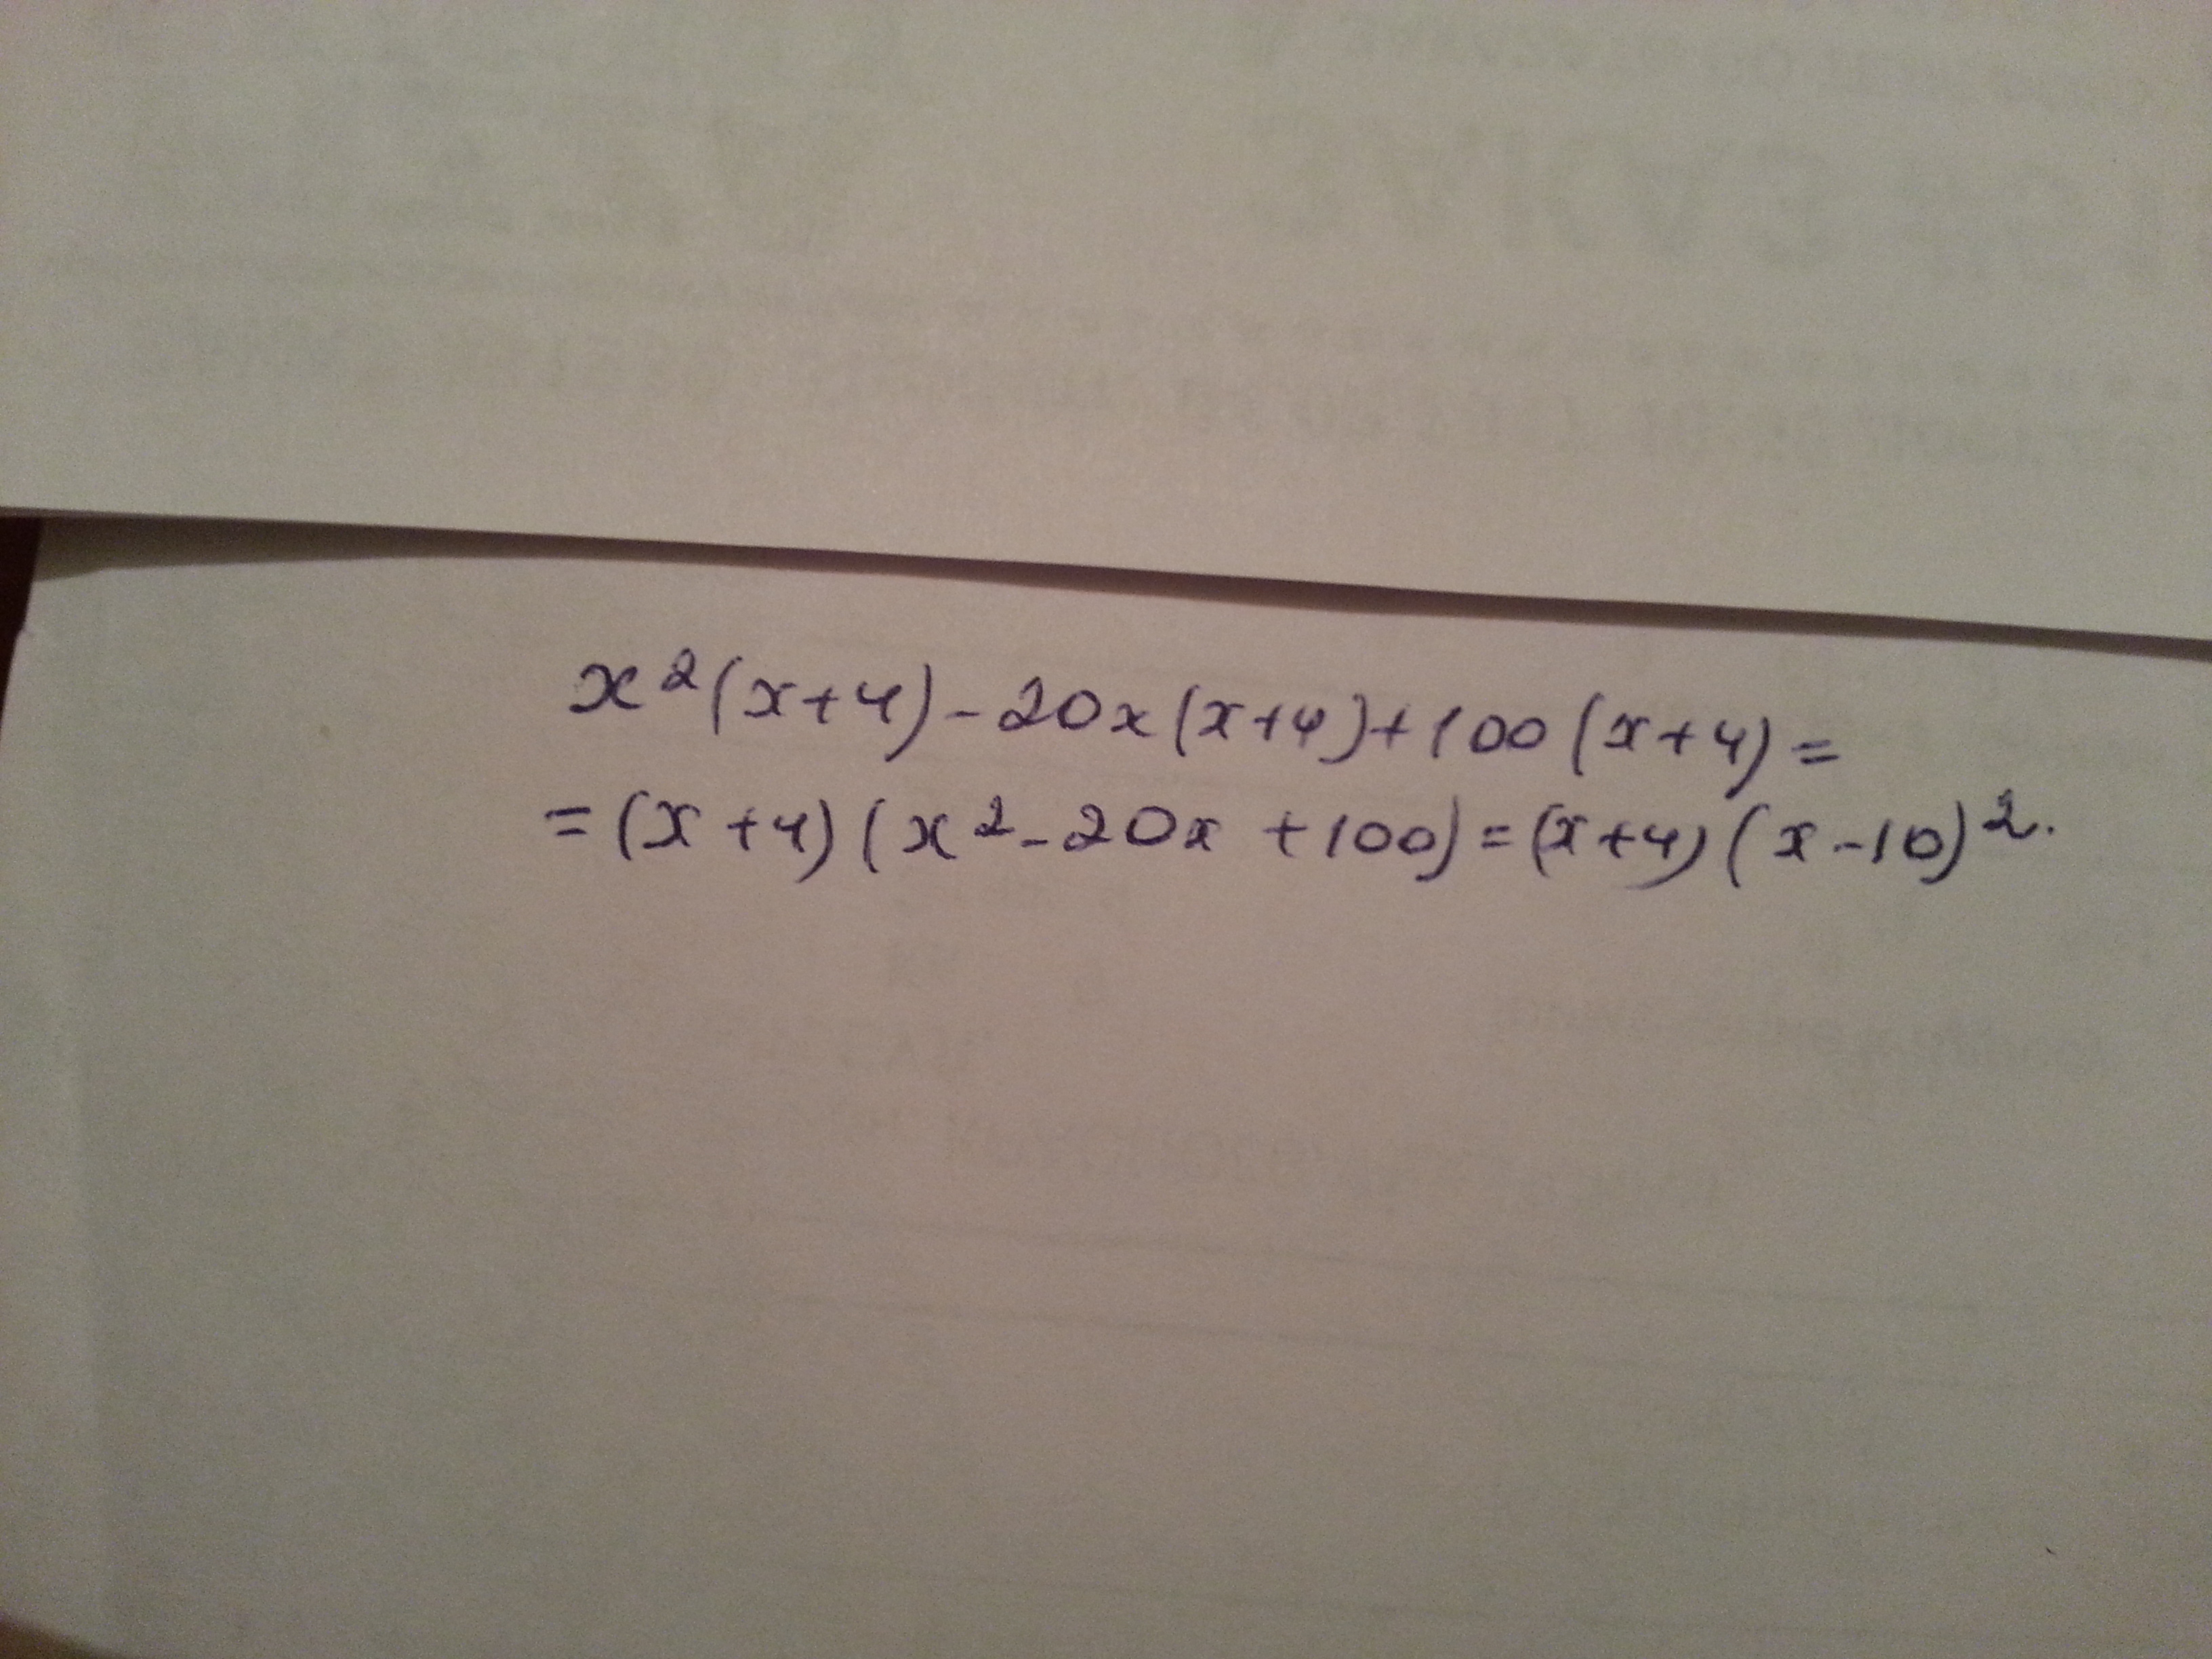 x²(x+4)-20x(x+4)+100(x+4)=
=(x+4)(x²-20x+100)=(x+4)(x-10)².